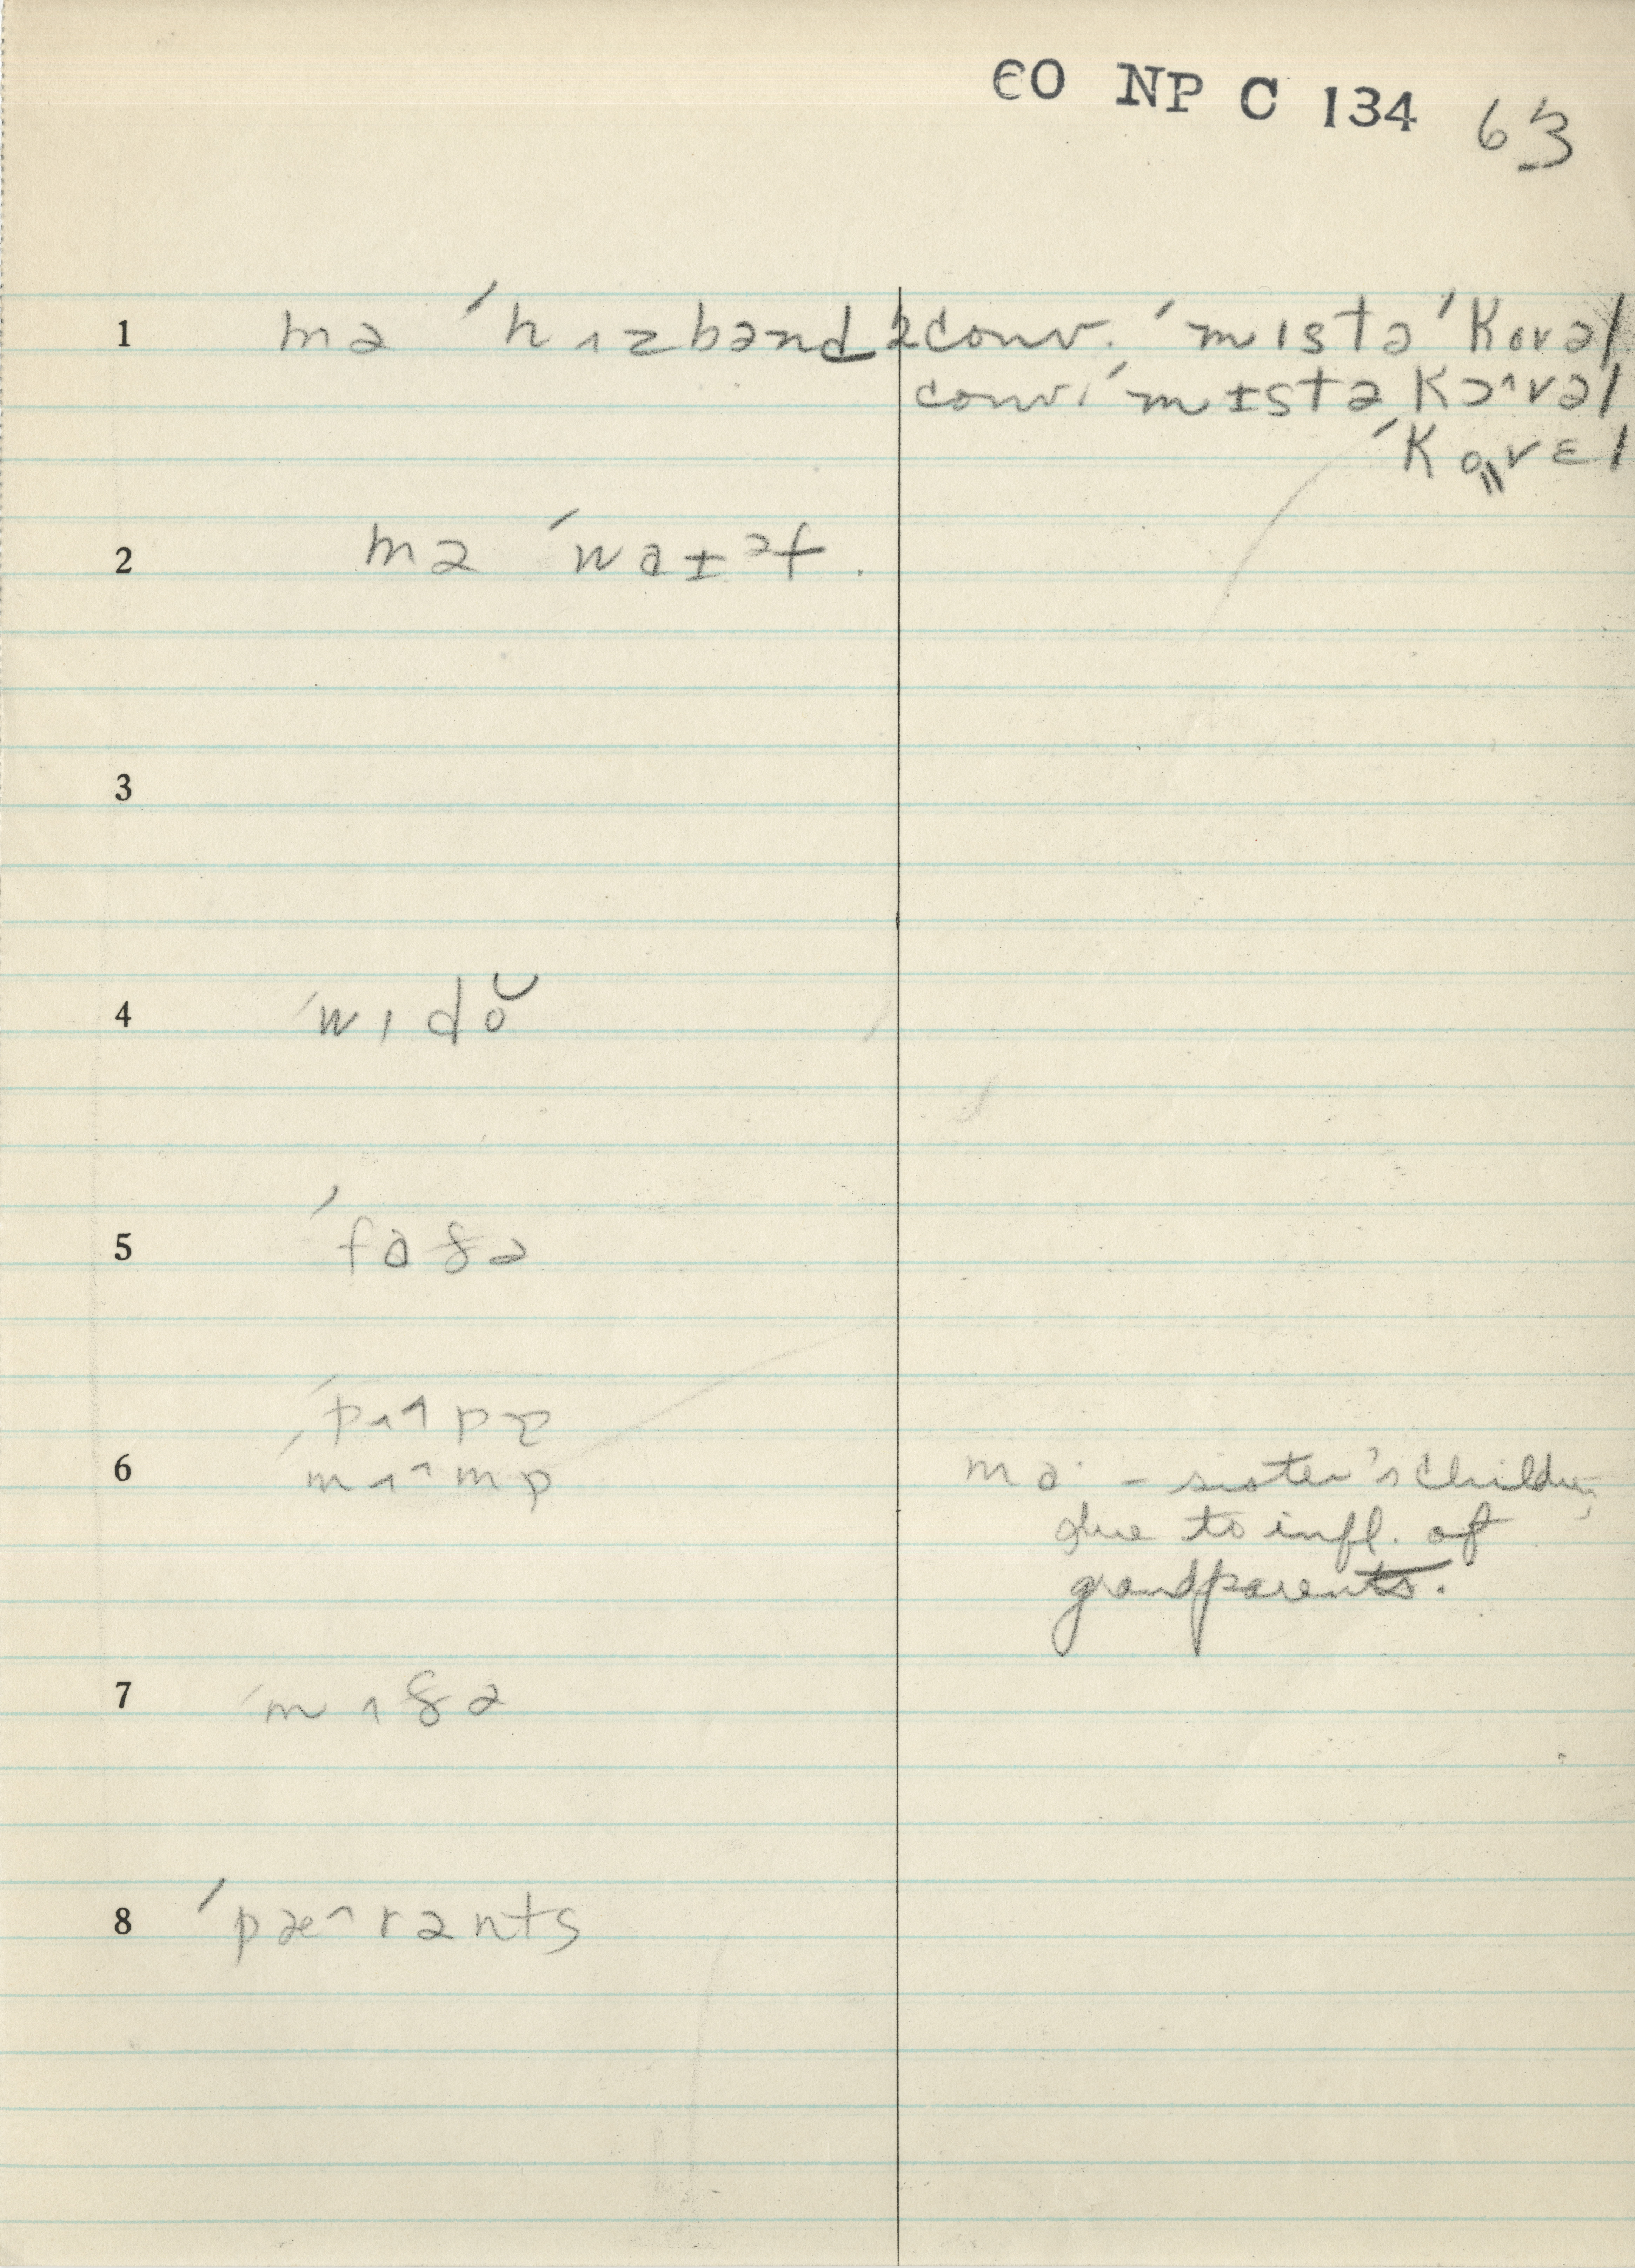 EO NP C 134 63
1 mə ˈhʌzbənd 2conv. ˈmɪstə ˈKovəl
conv. ˈmɨstə Kɔ^vəl
ˈKovɛl
2 mə ˈwaɨəf.
3
4 ˈwɪdŏ
5 ˈfaðə
ˈpʌ^pɒ
6 ˈmʌ^mɒ ma· – sister's children,
due to infl. of
grandparents.
7 ˈmʌðə
8 ˈpæ^rənts